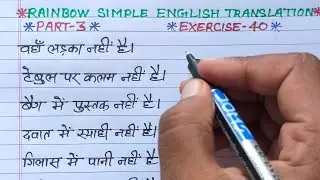 *RAINBOW SIMPLE ENGLISH TRANSLATION*
*PART-3* *EXERCISE-40*
वहाँ लड़का नहीं है।
टेबुल पर कलम नहीं है।
बैग में पुस्तक नहीं है।
दवात में स्याही नहीं है।
गिलास में पानी नहीं है।